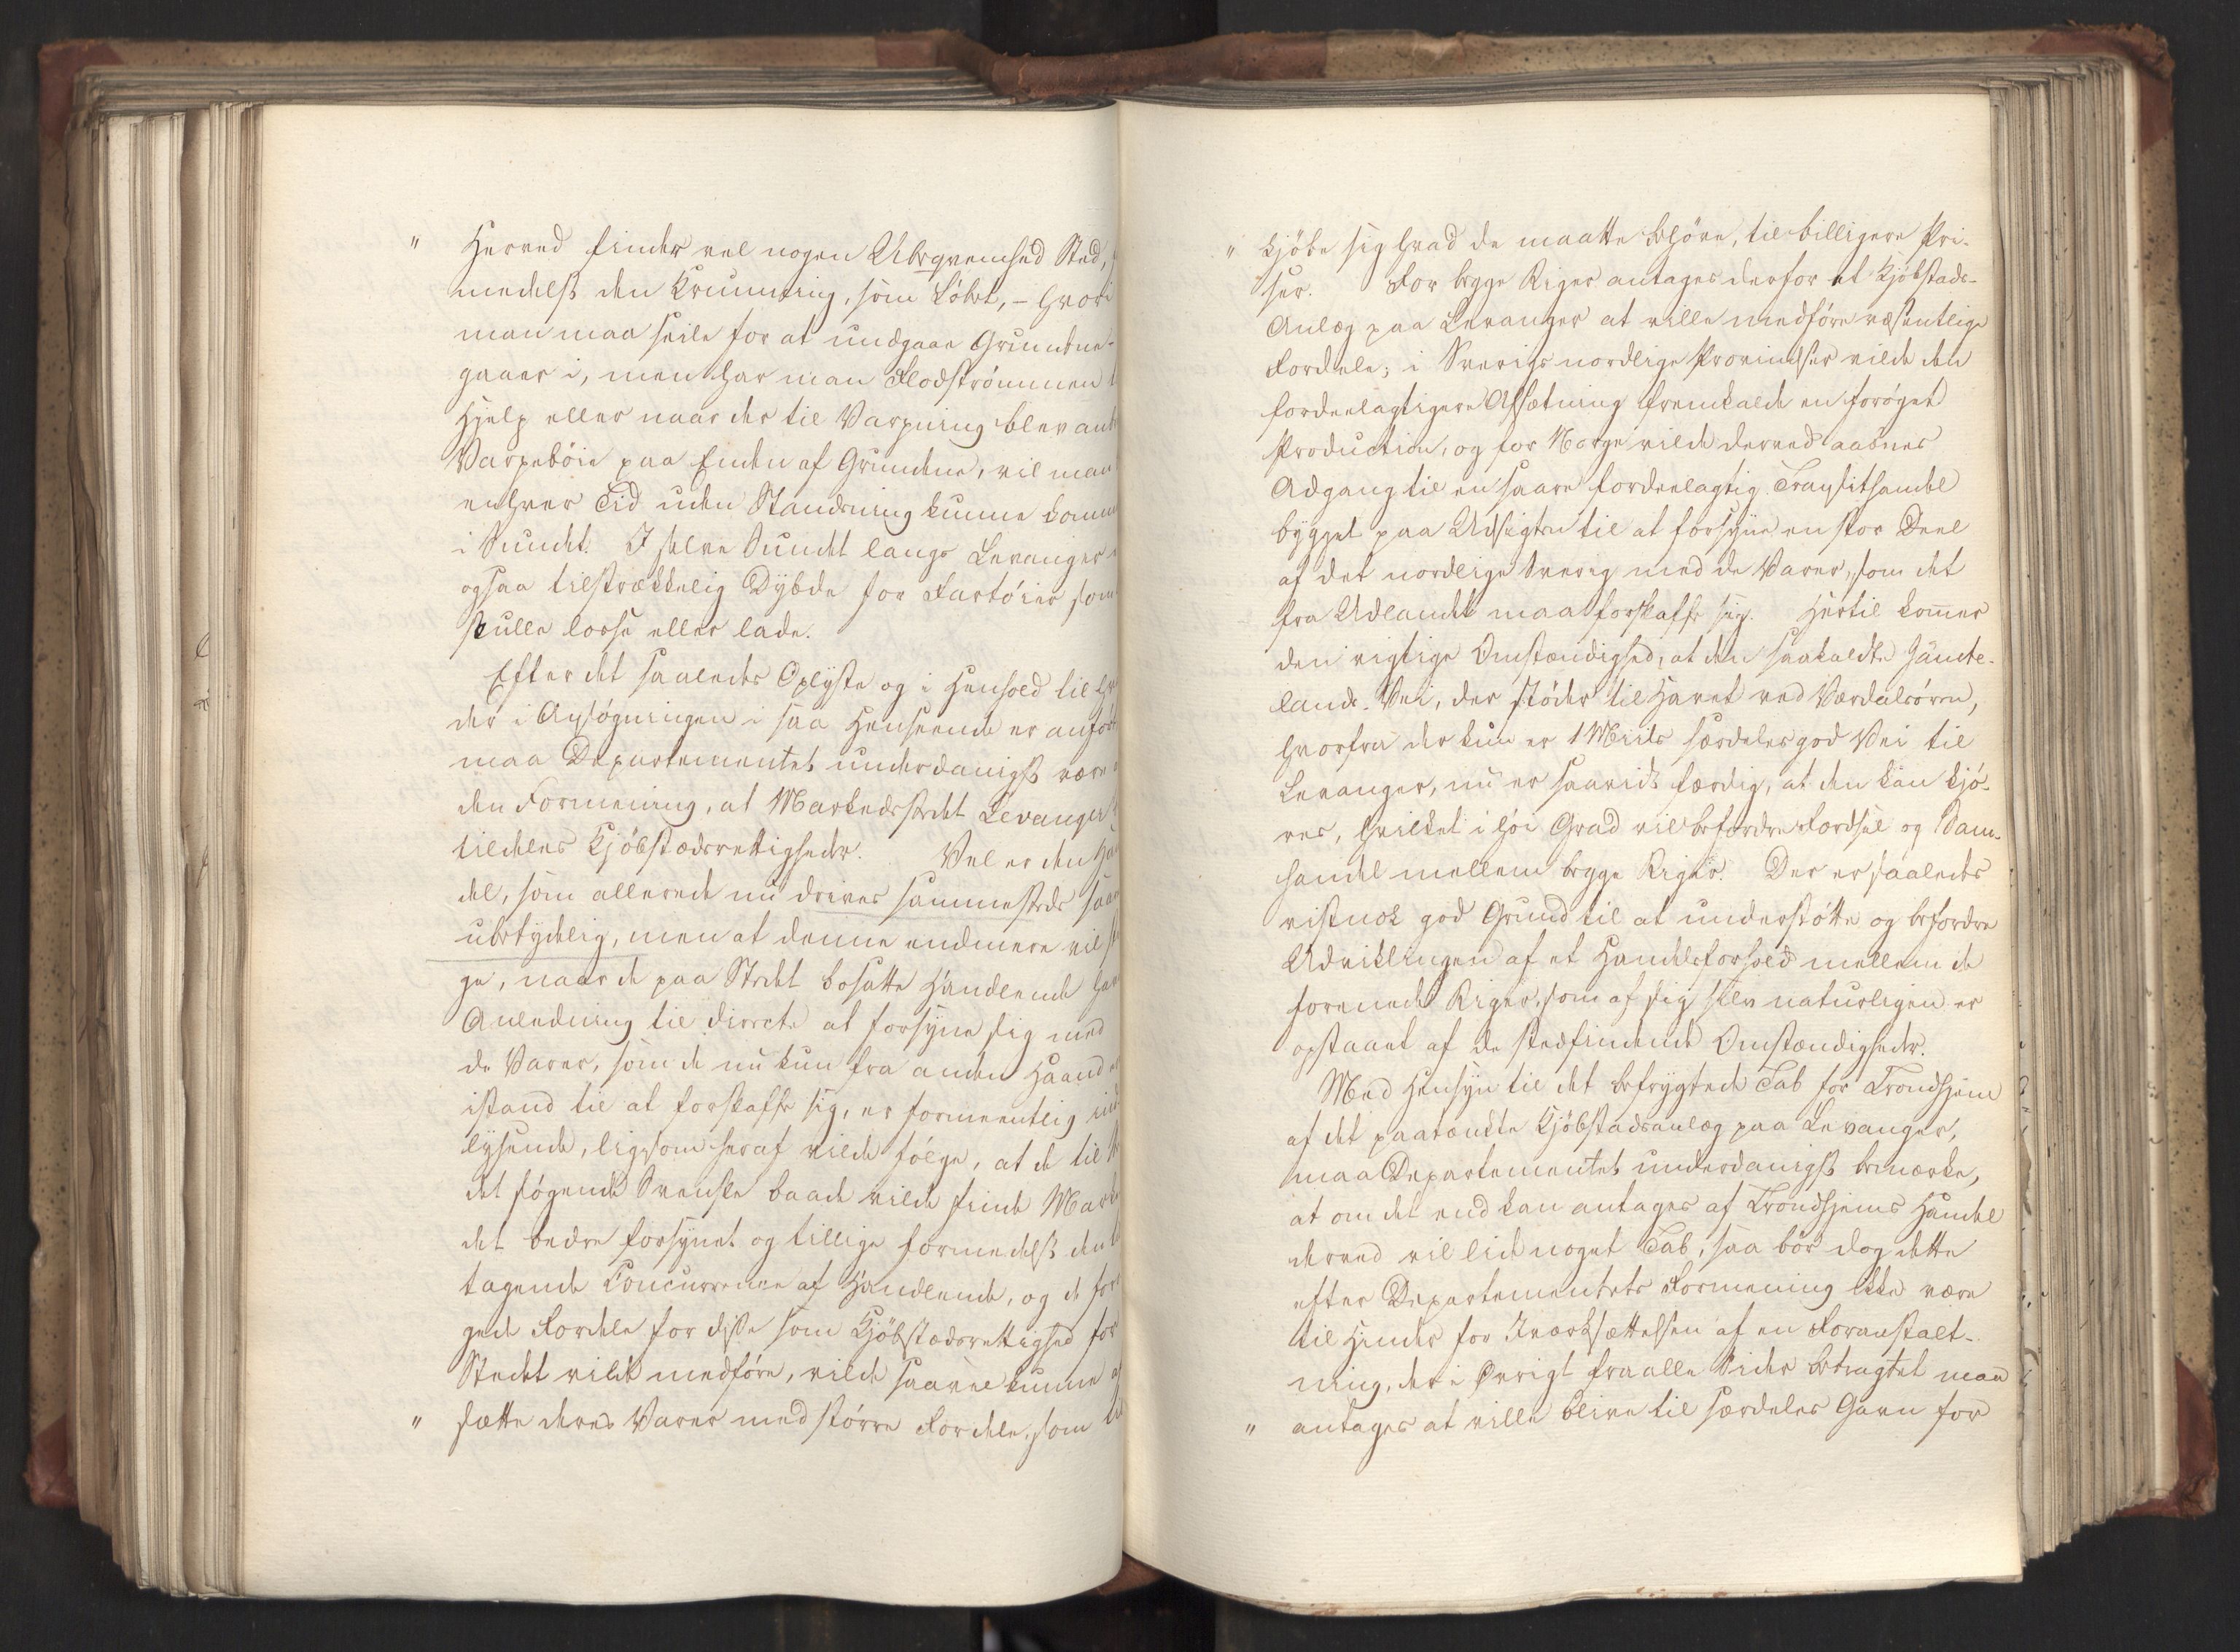 " Herved finder vel nogen Ubeqvemhed Sted,
medelst den Krumning, som Løbet, – hvori
man maa seile for at undgaae Grundene –
gaaer i, men har man Flodstrømmen
Hjelp eller naar der til Varpning blev an
Varpebøie paa Enden af Grundene, vil man
enhver Tid uden Standsning kunne komme
i Sundet. I selve Sundet langs Levanger
ogsaa tilstrækkelig Dybde for Fartøier som
skulle losse eller lade.
Efter det saaledes Oplyste og i Henhold til
der i Ansøgningen i saa Henseende er anført
maa Departementet underdanigst være
den Formening, at Markedsstedet Levanger
tildeles Kjøbstadsrettigheder. Vel er den Han
del, som allerede nu drives sammesteds
ubetydelig, men at denne endmere vil
ge, naar de paa Stedet bosatte Handlende
Anledning til directe at forsyne sig med
de Varer, som de nu kun fra anden Haand
istand til at forskaffe sig, er formeentlig ind
lysende, ligesom heraf vilde følge, at de til
det søgende Svenske baade vilde finde Marke
det bedre forsynet og tillige formedelst den
tagende Concurrence af Handlende, og de for
gede Fordele for disse som Kjøbstadsrettighed for
Stedet vilde medføre, vilde saavel kunne
" sætte deres Varer med større Fordele, som
" kjøbe sig hvad de maatte behøve, til billigere Pri-
ser. For begge Riger antages derfor et Kjøbstads-
Anlæg paa Levanger at ville medføre væsentlige
Fordele; i Sverigs nordlige Provindser vilde den
fordeelagtigere Afsætning fremkalde en forøget
Production, og for Norge vilde derved aabnes
Adgang til en saare fordeelagtig Transithandel
bygget paa Udsigten til at forsyne en stor Deel
af det nordlige Sverig med de Varer, som det
fra Udlandet maa forskaffe sig. Hertil kommer
den vigtige Omstændighed, at den saakaldte Jämte-
lands-Vei, der støder til Havet ved Værdalsøren,
hvorfra der kun er 1 Miils særdeles god Vei til
Levanger, nu er saavidt færdig, at den kan kjø-
res, hvilket i høi Grad vil befordre Fordsel og Sam-
handel mellem begge Riger. Der er saaledes
vistnok god Grund til at understøtte og befordre
Udviklingen af et Handelsforhold mellem de
forenede Riger, som af sig selv naturligen er
opstaaet af de stedfindende Omstændigheder.
Med Hensyn til det befrygtede Tab for Trondhjem
af det paatænkte Kjøbstadsanlæg paa Levanger,
maa Departementet underdanigst bemærke,
at om det end kan antages at Trondhjems Handel
derved vil lide noget Tab, saa bør dog dette
efter Departementets Formening ikke være
til Hinder for Iværksættelsen af en Foranstalt-
ning, der i Øvrigt fra alle Sider betragtet maa
" antages at ville blive til særdeles Gavn for